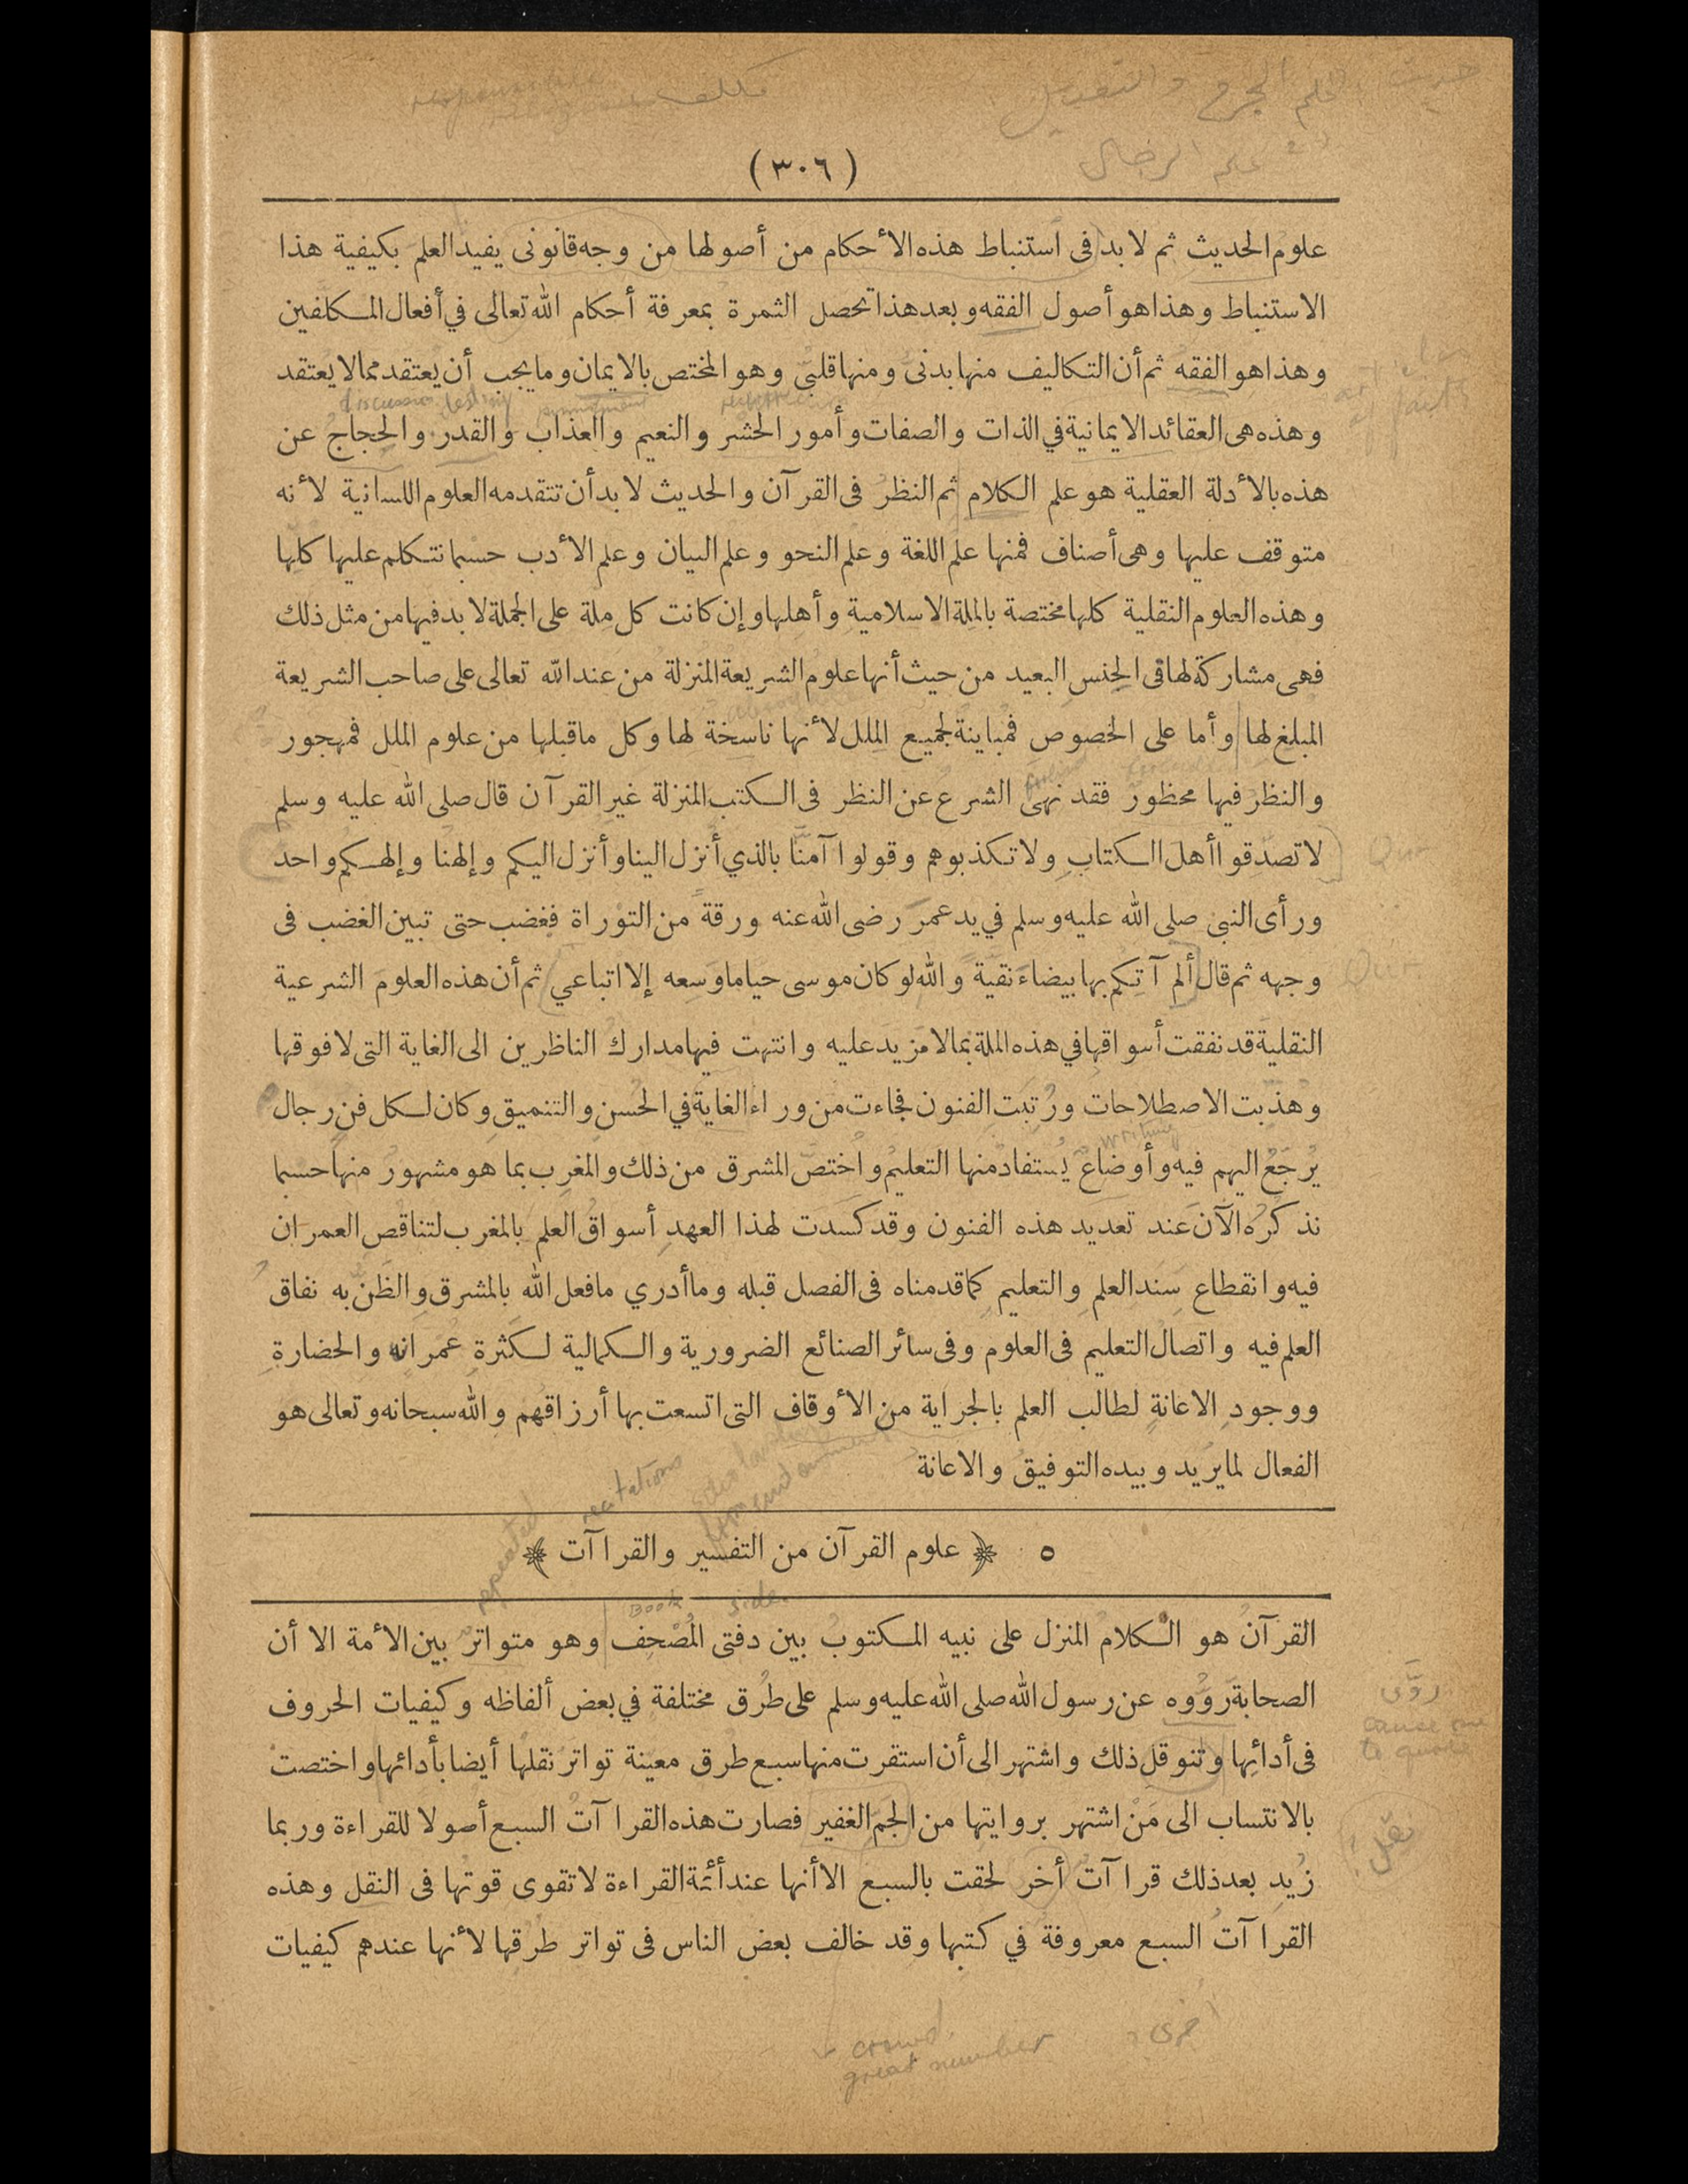 حديث علم الجرح والتعديل
مكلف responsible
علم الرجال
(٣٠٦)
علوم الحديث ثم لا بد فى استنباط هذه الأحكام من أصولها من وجه قانونى يفيد العلم بكيفية هذا
الاستنباط وهذا هو أصول الفقه وبعد هذا تحصل الثمرة بمعرفة أحكام الله تعالى في أفعال المكلفين
وهذا هو الفقه ثم أن التكاليف منها بدنىّ ومنها قلبىّ وهو المختص بالايمان وما يجب أن يُعتقد مما لا يعتقد
discussion destiny punishment
وهذه هى العقائد الايمانية في الذات والصفات وأمور الحشر والنعيم والعذاب والقدر والحِجاج عن
هذه بالأدلة العقلية هو علم الكلام ثم النظرُ فى القرآن والحديث لا بد أن تتقدمه العلوم اللسانية لأنه
متوقف عليها وهى أصناف فمنها علم اللغة وعلم النحو وعلم البيان وعلم الأدب حسبما نتكلم عليها كلها
وهذه العلوم النقلية كلها مختصة بالملة الاسلامية وأهلها وإن كانت كل مِلة على الجملة لا بد فيها من مثل ذلك
فهى مشاركة لها فى الجِنسِ البعيد من حيث أنها علومُ الشريعة المنزلة من عند الله تعالى على صاحب الشريعة
المبلغ لها وأما على الخصوص فمُباينةٌ لجميع الملل لأنها ناسخة لها وكل ما قبلها من علوم الملل فمهجور
والنظرُ فيها محظور فقد نهى الشرع عن النظر فى الكتب المنزلة غير القرآن قال صلى الله عليه وسلم
لا تصدقوا أهلَ الكتابِ ولا تكذبوهم وقولوا آمنّا بالذي أُنزل الينا وأُنزل اليكم وإلهنُا وإلهكُم واحد
ورأى النبى صلى الله عليه وسلم في يد عمرَ رضى الله عنه ورقةً من التوْراة فغضب حتى تبين الغضب فى
وجهه ثم قال ألم آتِكم بها بيضاءَ نقيةً والله لو كان موسى حيا ما وَسِعه إلا اتباعي ثم أن هذه العلومَ الشرعية
النقلية قد نفقت أسواقها في هذه الملة بما لا مزيد عليه وانتهت فيها مداركُ الناظرين الى الغاية التى لا فوقها
وهذبت الاصطلاحات ورُتبت الفنون فجاءت من وراء الغاية في الحُسنِ والتنميقِ وكان لكل فن رجال
writing
يُرْجَعُ اليهم فيه وأوضاعٌ يُستفاد منها التعليم واختصّ المشرق من ذلك والمغرِب بما هو مشهور منها حسبما
نذكرُه الآنَ عند تعديد هذه الفنون وقد كَسَدت لهذا العهدِ أسواقُ العلم بالمغرب لتناقص العمران
فيه وانقطاع سَند العلمِ والتعليمِ كما قدمناه فى الفصل قبله وما أدري ما فعل الله بالمشرق والظَنّ به نفاق
العلم فيه واتصالُ التعليم فى العلوم وفى سائر الصنائع الضرورية والكمالية لكثرةِ عُمْرانه والحضارةِ
ووجودِ الاعانةِ لطالب العلم بالجراية من الأوقاف التى اتسعت بها أرزاقهُم والله سبحانه وتعالى هو
الفعال لما يرُيد وبيده التوفيقُ والاعانة
recitations
repeated
٥ ﴿ علوم القرآن من التفسير والقراآت ﴾
Book side
القرآنُ هو الكلامُ المنزل على نبيه المكتوبُ بين دفتى المُصْحَفِ وهو متواترٌ بين الأمة الا أن
الصحابةَ روَوْه عن رسول الله صلى الله عليه وسلم على طُرق مختلفة في بعض ألفاظه وكيفيات الحروف
روّى
cause one
to quote
فى أدائِها وتنوقل ذلك واشتهر الى أن استقرت منها سبع طرق معينة تواترَ نقلهُا أيضا بأدائها واختصتْ
بالانتساب الى مَنْ اشتهر بروايتها من الجَمّ الغفير فصارت هذه القراآتُ السبع أصولا للقراءة وربما
نقل
زُيد بعد ذلك قراآتٌ أخر لحقت بالسبع الا أنها عند أئمة القراءة لا تقوى قوتها فى النقل وهذه
القراآتُ السبع معروفةٌ في كتبها وقد خالف بعض الناس فى تواتر طرُقها لأنها عندهم كيفيات
crowd
great number
أخرى